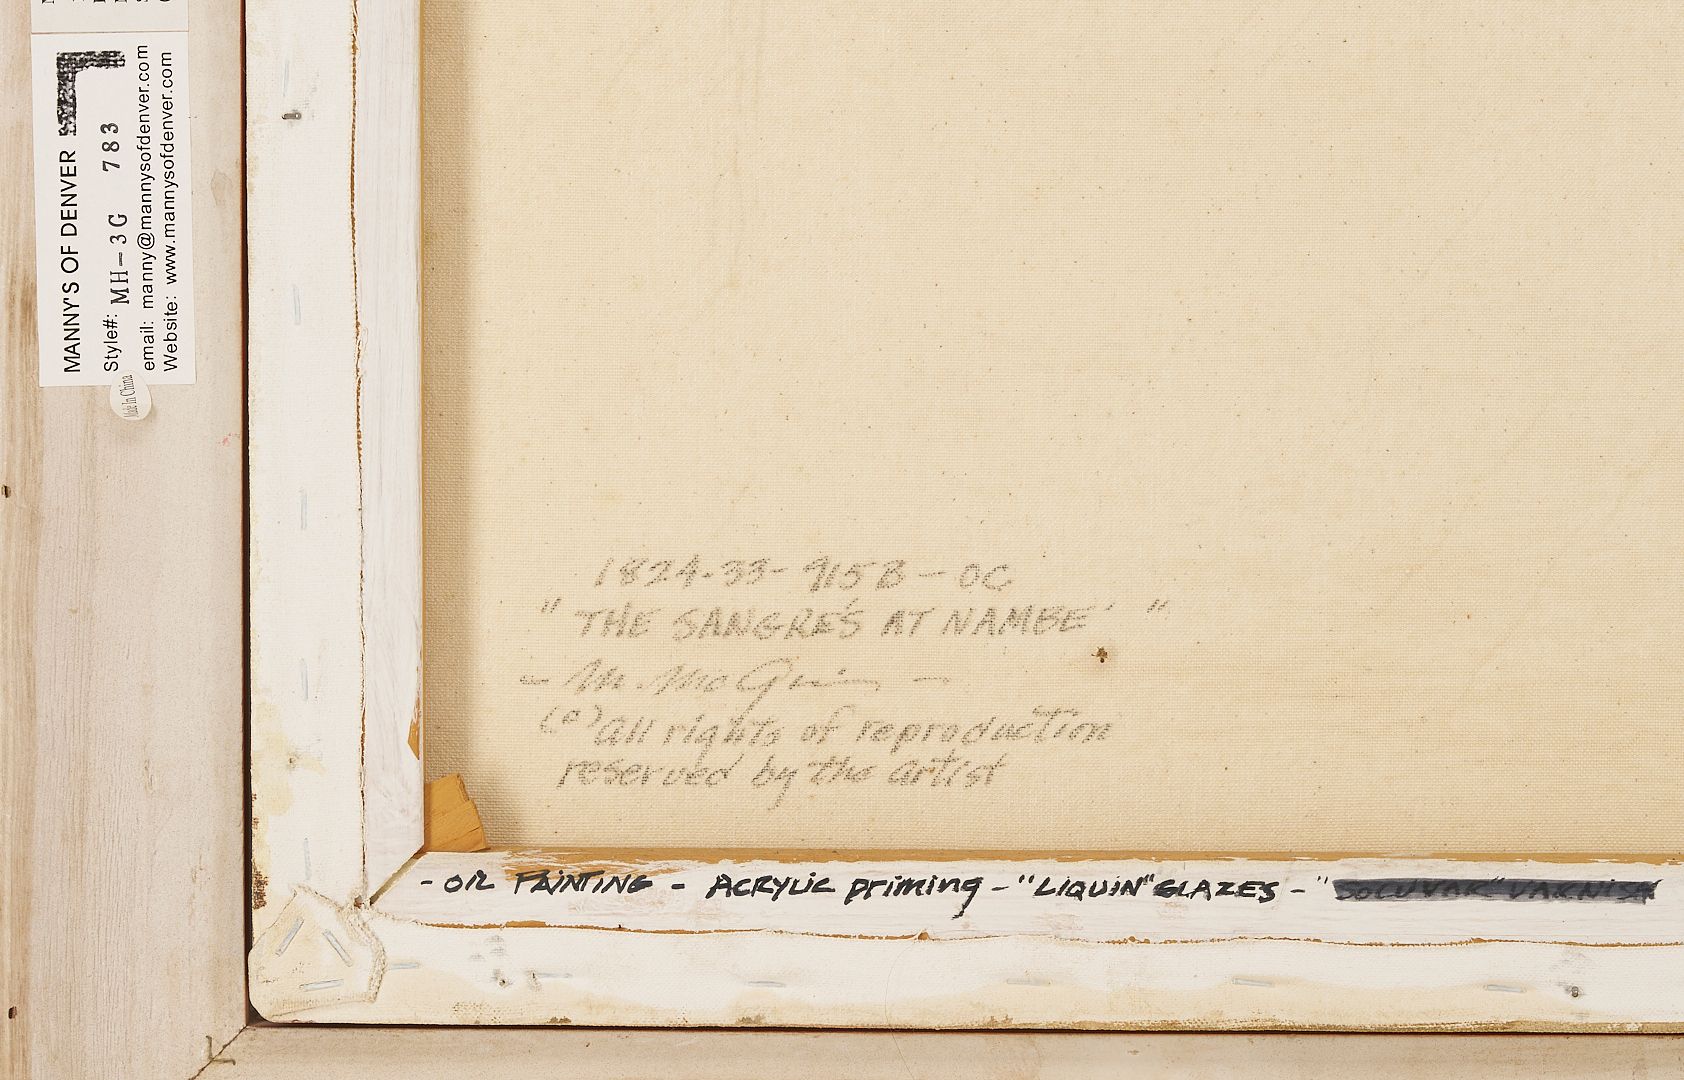 MANNY'S OF DENVER
Style#: MH-3G 783
email: manny@mannysofdenver.com
Website: www.mannysofdenver.com
Made In China
1824-33-915B-OC
"THE SANGRE'S AT NAMBE'"
(c) all rights of reproduction
reserved by the artist
-OIL PAINTING - ACRYLIC priming - "LIQUIN" GLAZES - "SOLUVAR" VARNISH